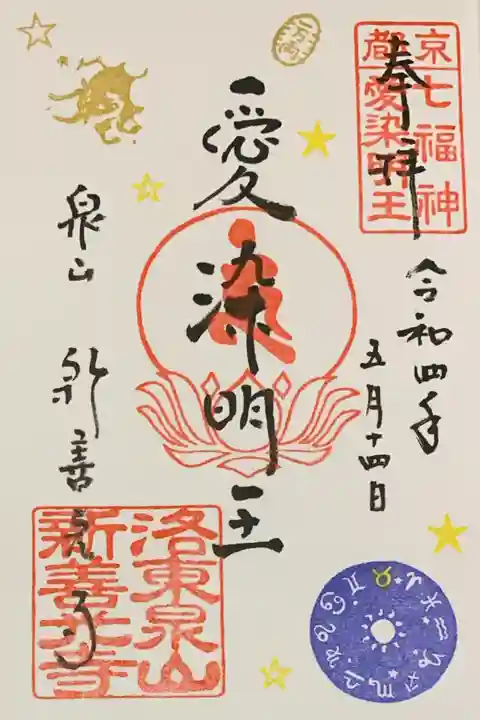 奉拝
京都七福神
愛染明王
令和四年
五月十四日
愛染明王
泉山 新善光寺
洛東泉山
新善光寺